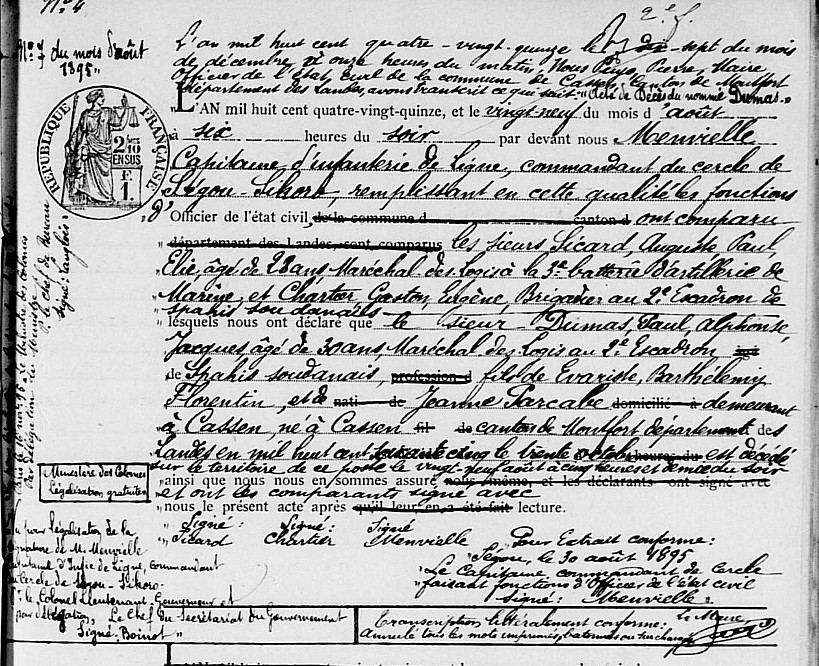 N° 4
2e f.
N° 7 du mois d'août
1895"
L'an mil huit cent quatre-vingt-quinze le dix-sept du mois
de décembre, à onze heures du matin, Nous Pierre, Maire
Officier de l'état civil de la commune de Cassen, Canton de Montfort
département des Landes, avons transcrit ce qui suit: "Acte de Décès du nommé Dumas."
L'AN mil huit cent quatre-vingt-quinze, et le vingt-neuf du mois d'août
à six heures du soir par devant nous Menvielle
Capitaine d'infanterie de Ligne, commandant du cercle de
Ségou-Sikoro, remplissant en cette qualité les fonctions
d'Officier de l'état civil de la commune d canton d ont comparu
département des Landes, sont comparus les sieurs Sicard, Auguste Paul,
Elie, âgé de 28 ans, Maréchal des Logis à la 3e batterie d'artillerie de
Marine, et Chartier, Gaston, Eugène, Brigadier au 2e Escadron de
spahis soudanais
lesquels nous ont déclaré que le sieur Dumas, Paul, Alphonse,
Jacques, âgé de 30 ans, Maréchal des Logis au 2e Escadron
de Spahis soudanais, profession d fils de Evariste, Barthélemy
Florentin, et de nati de Jeanne Darcabe domicilié à demeurant
à Cassen, né à Cassen de canton de Montfort département des
Landes en mil huit cent soixante cinq le trente octobre heures du est décédé
sur le territoire de ce poste le vingt-neuf août à cinq heures et demie du soir
ainsi que nous nous en sommes assuré nous même, et les déclarants ont signé avec
et ont les comparants signé avec
nous le présent acte après qu'il leur en a été fait lecture.
Signé: Signé: Signé
Sicard Chartier Menvielle
Pour Extrait conforme:
Ségou, le 30 août 1895
Le Capitaine commandant de Cercle
faisant fonctions d'Officier de l'état civil
signé: Menvielle
Transcription littéralement conforme: Le Maire,
Annulé tous les mots imprimés, bâtonnés ou surchargés
RÉPUBLIQUE FRANÇAISE
2/10 EN SUS
F. 1
le Ministre des Colonies
P. le chef de Bureau
Signé: Langlois
Ministère des Colonies
Légalisation gratuite
Vu pour légalisation de la
signature de M. Menvielle
Capitaine d'Infie de Ligne, commandant
du Cercle de Ségou-Sikoro
P. le Colonel Lieutenant Gouverneur et
par délégation, Le Chef du Secrétariat du Gouvernement
Signé: Boinot